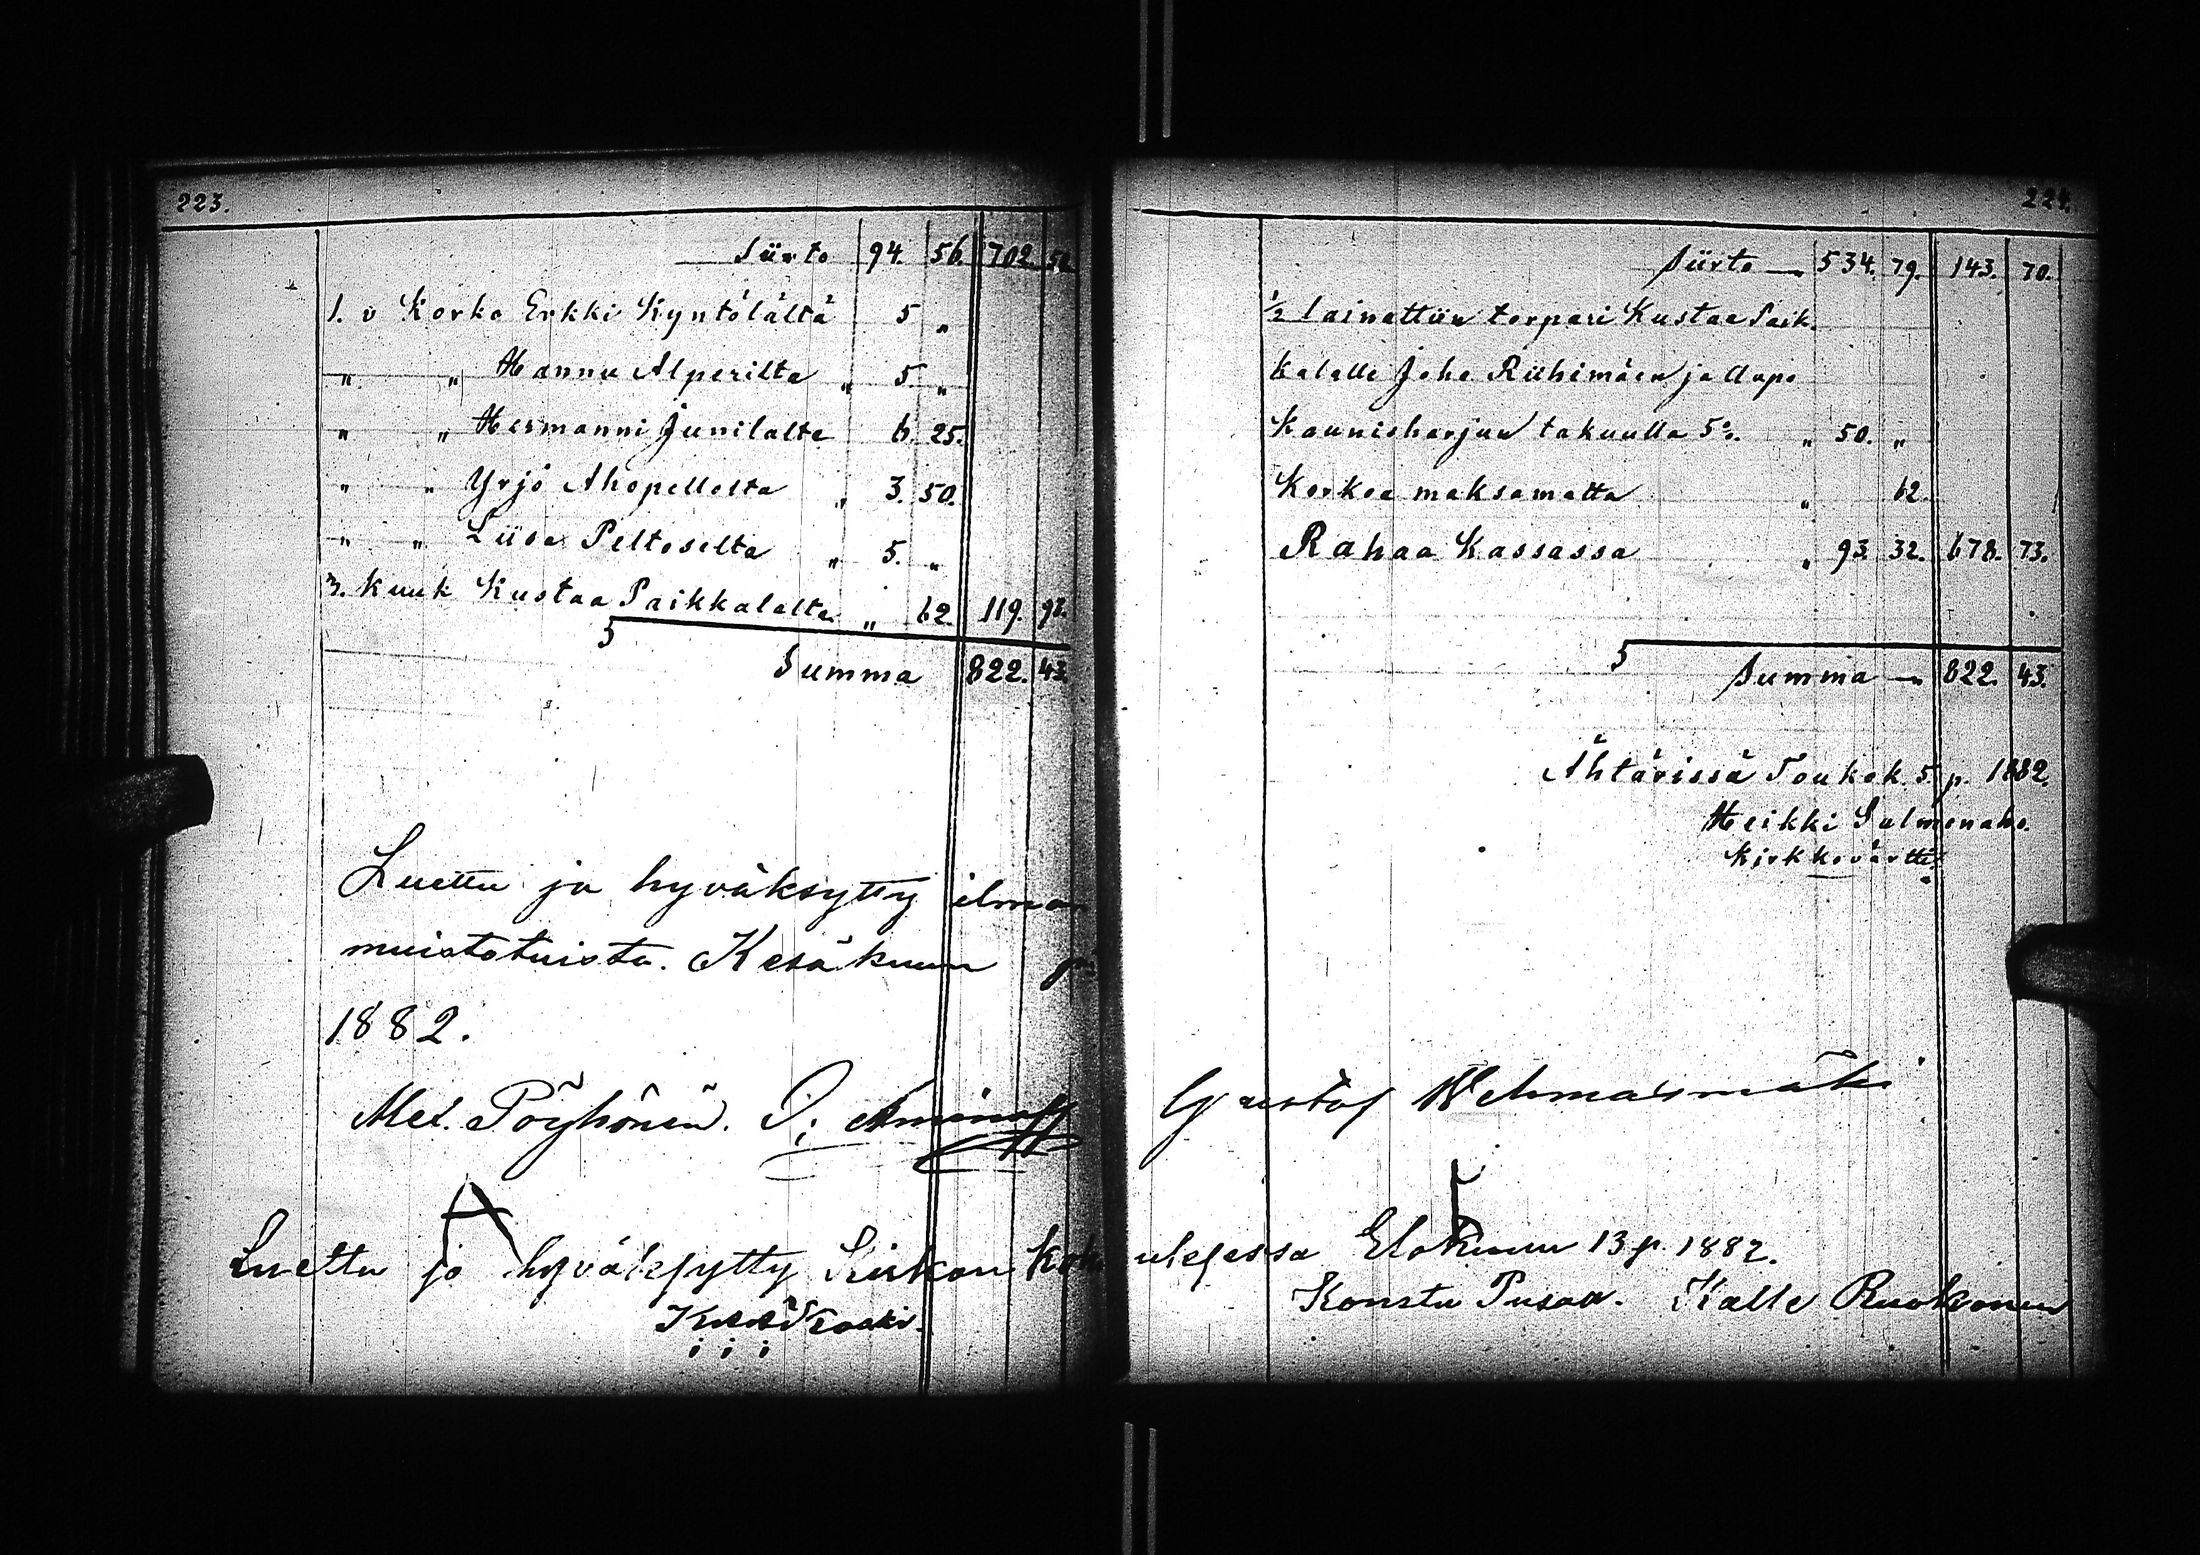 223.
Siirto 94. 56. 702. 5
1. v Korko Erkki Kyntölältä 5 „
„ „ Hannu Alperilta „ 5 „
„ „ Hermanni Junilalta 6. 25.
„ „ Yrjö Ahopellolta „ 3. 50.
„ „ Liisa Peltoselta „ 5. „
3. kuuk Kustaa Paikkalalta „ 62 119. 93.
Summa 822. 43.
Luettu ja hyväksytty ilman
muistotuista. Kesäkuun p
1882.
Mel. Pöyhönen. Aminoff
Luettu ja hyväksytty Kirkon kok
224.
Siirto 534. 79. 143. 70.
1/2 lainattiin torpari Kustaa Paik
kalalle Joha Riihimäen ja Aapo
Kaunisharjun takuulla 5%. „ 50. „
Korkoa maksamatta „ 62.
Rahaa Kassassa „ 93. 32. 678. 73.
Summa 822. 43.
Ähtärissä Toukok. 5 p. 1882.
Heikki Salmenaho.
Kirkkovärtti
Gustaf Wehmasmäki
uksessa Elokuun 13 p. 1882.
Konstu Pusaa. Kalle Ruokonen